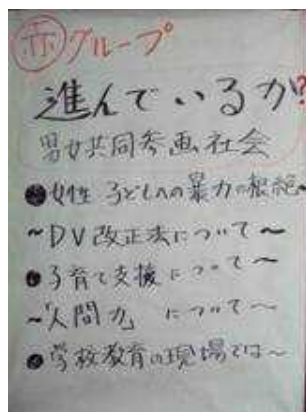 赤グループ
進んでいるか?
男女共同参画社会
●女性 子どもへの暴力の根絶~
~DV改正法について~
●子育て支援について~
~「人間力」について~
●学校教育の現場では~